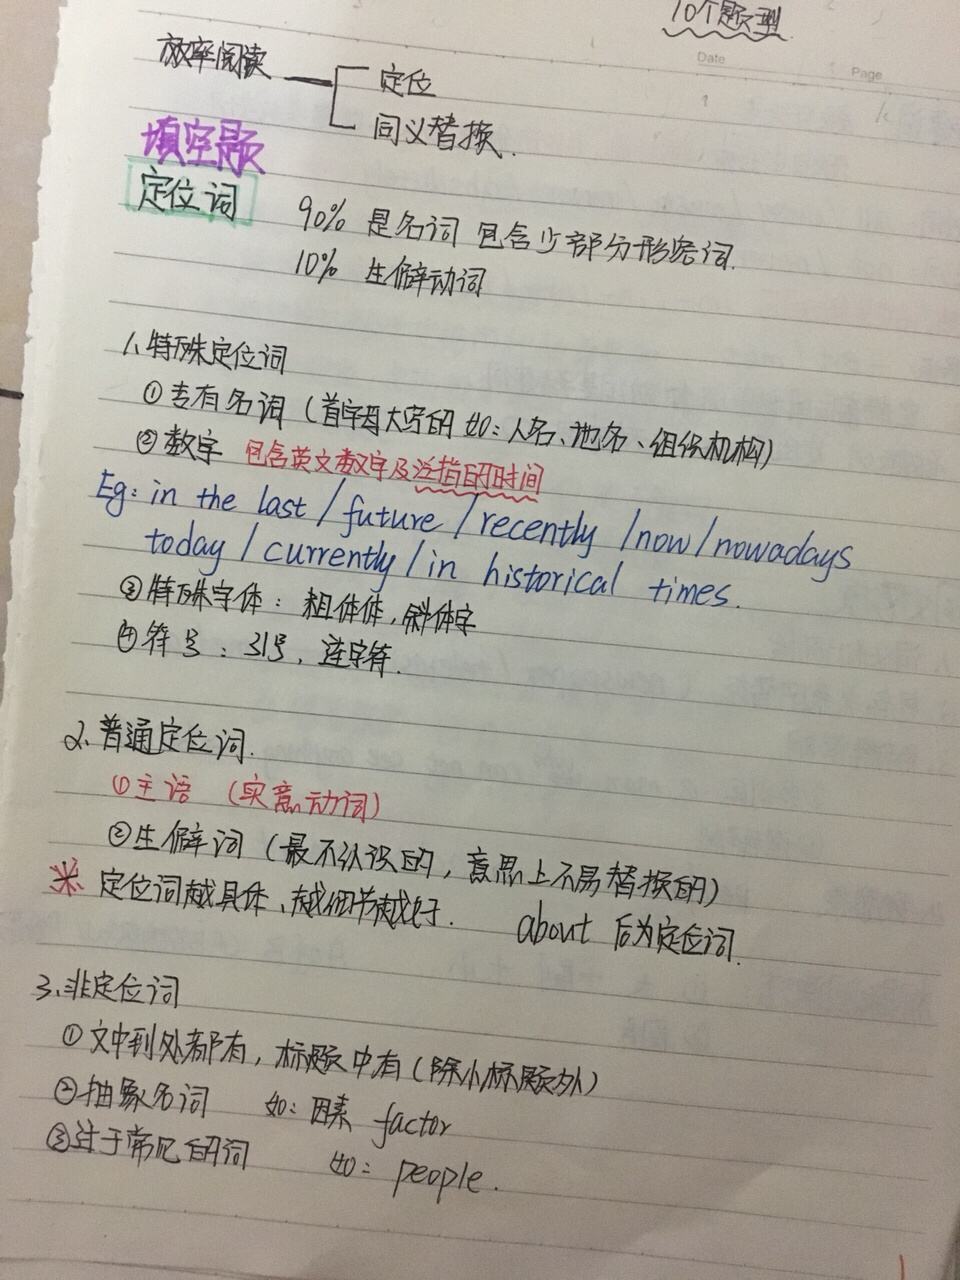 10个题型
Date
Page
放率阅读
定位
同义替换.
填空题
定位词
90% 是名词 包含少部分形容词.
10% 生僻动词
1、特殊定位词
①专有名词（首字母大写的 如：人名、地名、组织机构）
②数字 包含英文数字及泛指的时间
Eg: in the last / future / recently / now / nowadays
today / currently / in historical times.
③特殊字体：粗体体，斜体字
④符号：引号，连字符.
2、普通定位词.
①主语（实意动词）
②生僻词（最不认识的，意思上不易替换的）
※ 定位词越具体、越细节越好. about 后为定位词.
3、非定位词
①文中到处都有，标题中有（除小标题外）
②抽象名词 如：因素 factor
③过于常见的词 如：people.